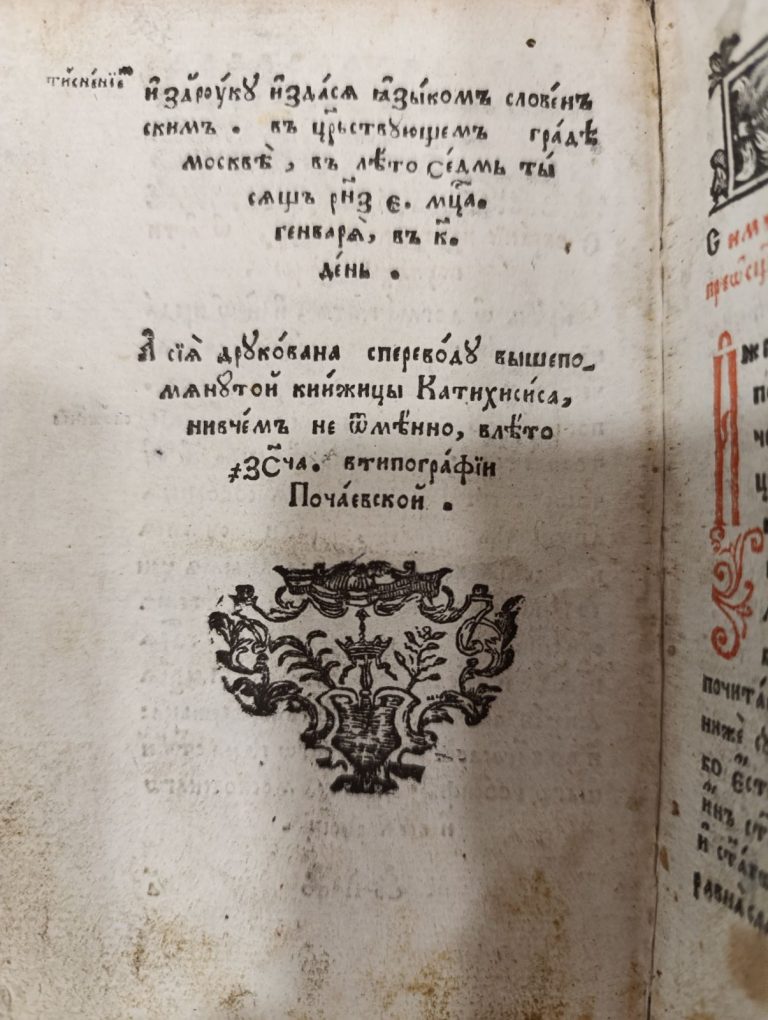 тисненїѐ
и҆здроуку и҆здасѧ ꙗ҆зыкомъ словен
скимъ. въ црⷭ҇ствующемъ гра́дѣ
москвѣ̀, въ лѣ́то се́дмь ты́
сѧщъ рн҃з є҃. мцⷭ҇а.
генварѧ̀, въ к҃.
де́нь.
А҆ сїѧ̀ друко́вана спереводу вышепо_
мѧнутой кни́жицы Катихиси́са,
нивче́мъ не ѿмѣ́нно, влѣ́то
҂зсч҃а. втипогра́фїи
Поча́евской.
С
почита́
ниже
ко є҆ст